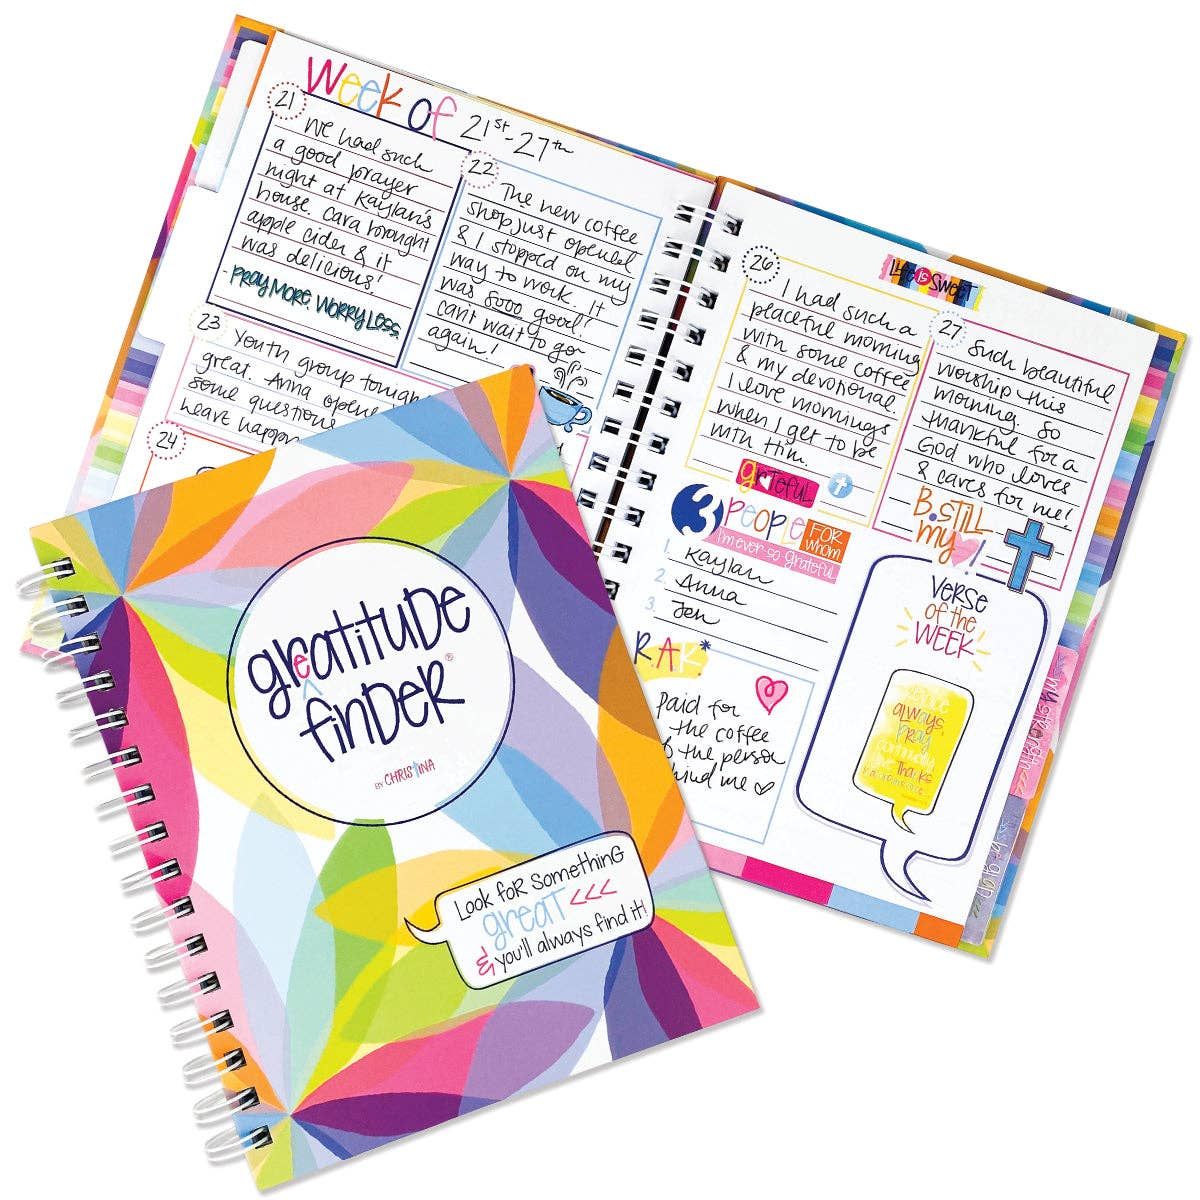 Week of 21st-27th
21
We had such
a good prayer
night at Kaylan's
house. Cara brought
apple cider & it
was delicious!
-PRAY MORE. WORRY LESS
22
The new coffee
shop just opened
& I stopped on my
way to work. It
was sooo good!
can't wait to go
again!
23
Youth group tonight
great. Anna opened
some questions
heart happy
24
26
I had such a
peaceful morning
with some coffee
& my devotional.
I love mornings
when I get to be
with Him.
grateful
Life is Sweet
27
Such beautiful
worship this
morning. So
thankful for a
God who loves
& cares for me!
B.STILL
my !
3 PEOPLE FOR whom
I'm ever-so grateful
1. Kaylan
2. Anna
3. Jen
RAK*
Paid for
the coffee
of the person
behind me
VERSE
OF THE
WEEK
always
pray
thanks
greatitude
finder®
BY CHRISTINA
Look for something
great <<<
& you'll always find it!